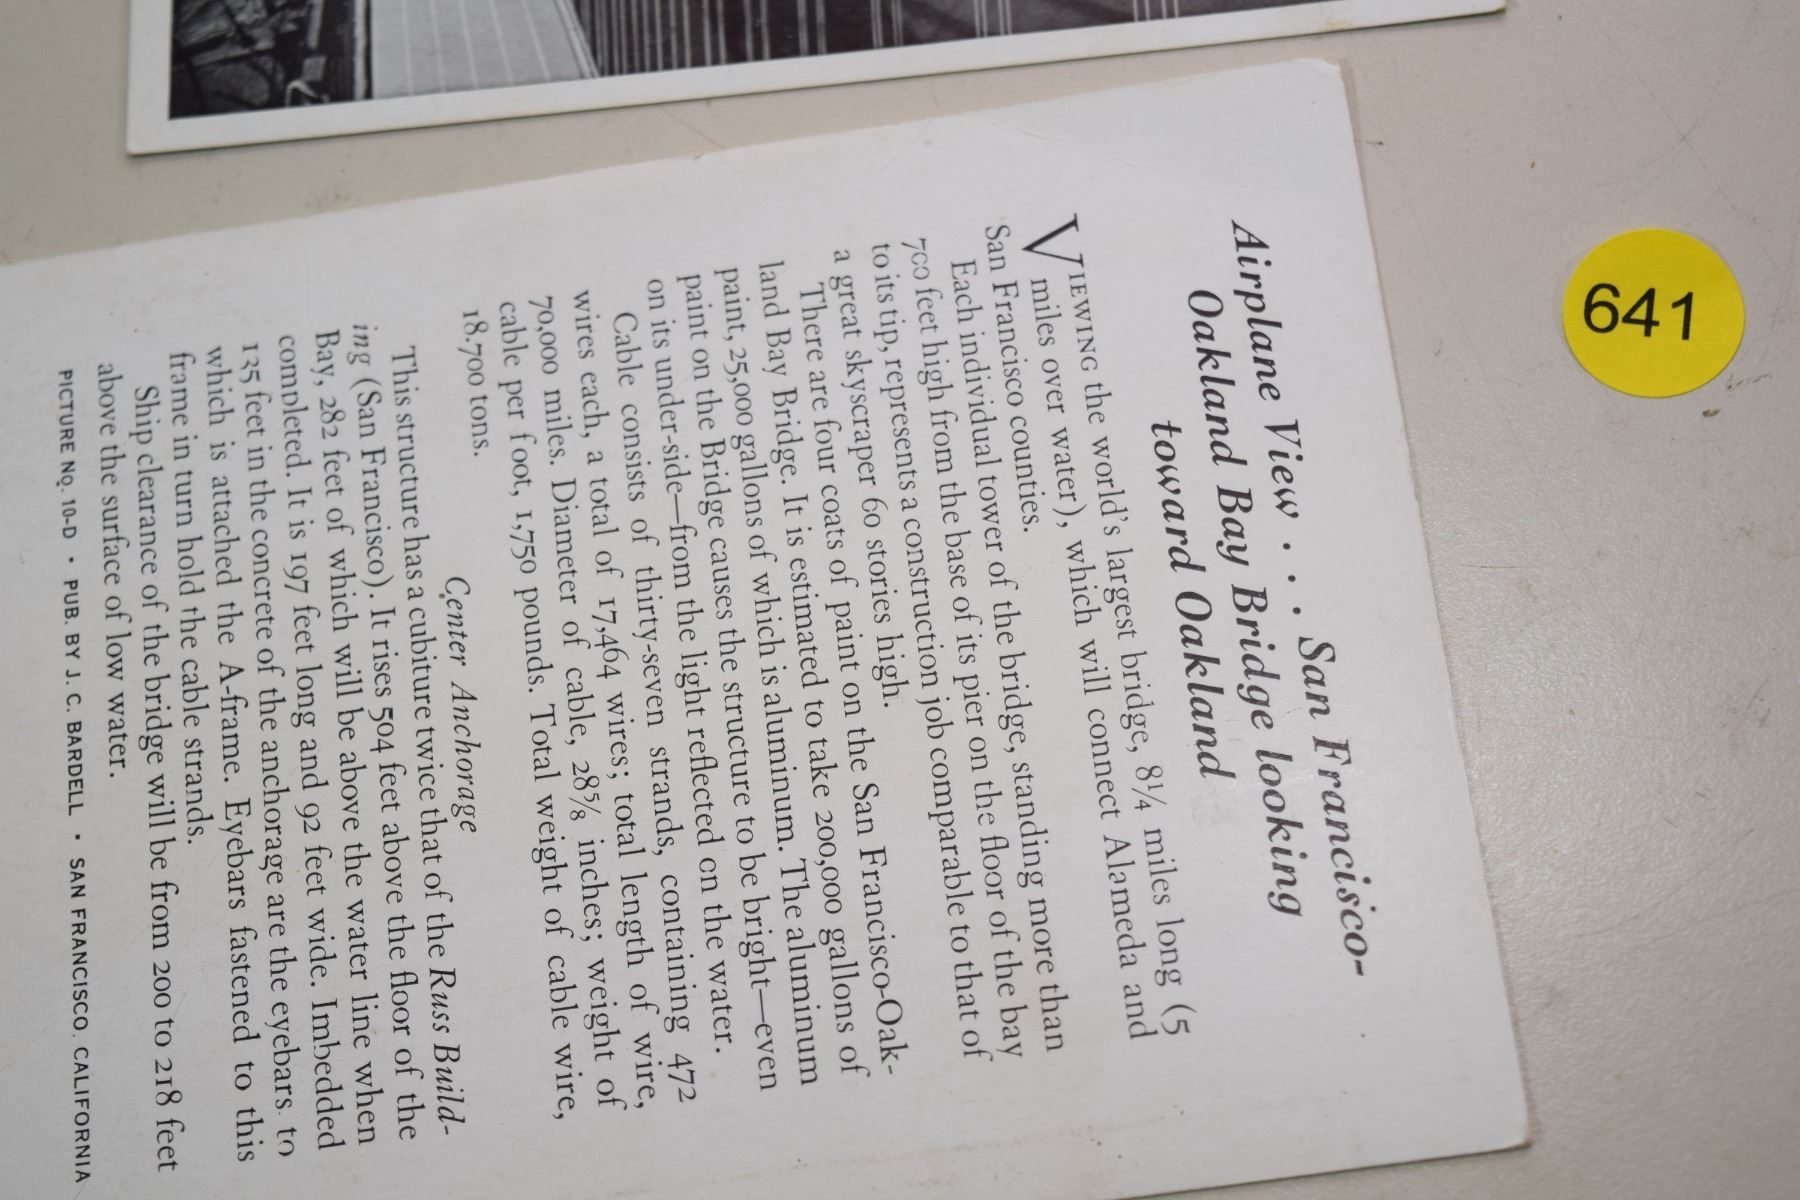 Airplane View . . . San Francisco-
Oakland Bay Bridge looking
toward Oakland
VIEWING the world's largest bridge, 8¼ miles long (5
miles over water), which will connect Alameda and
San Francisco counties.
Each individual tower of the bridge, standing more than
700 feet high from the base of its pier on the floor of the bay
to its tip, represents a construction job comparable to that of
a great skyscraper 60 stories high.
There are four coats of paint on the San Francisco-Oak-
land Bay Bridge. It is estimated to take 200,000 gallons of
paint, 25,000 gallons of which is aluminum. The aluminum
paint on the Bridge causes the structure to be bright—even
on its under-side—from the light reflected on the water.
Cable consists of thirty-seven strands, containing 472
wires each, a total of 17,464 wires; total length of wire,
70,000 miles. Diameter of cable, 28⅝ inches; weight of
cable per foot, 1,750 pounds. Total weight of cable wire,
18.700 tons.
Center Anchorage
This structure has a cubiture twice that of the Russ Build-
ing (San Francisco). It rises 504 feet above the floor of the
Bay, 282 feet of which will be above the water line when
completed. It is 197 feet long and 92 feet wide. Imbedded
135 feet in the concrete of the anchorage are the eyebars to
which is attached the A-frame. Eyebars fastened to this
frame in turn hold the cable strands.
Ship clearance of the bridge will be from 200 to 218 feet
above the surface of low water.
PICTURE NO. 10-D • PUB. BY J. C. BARDELL • SAN FRANCISCO. CALIFORNIA
641